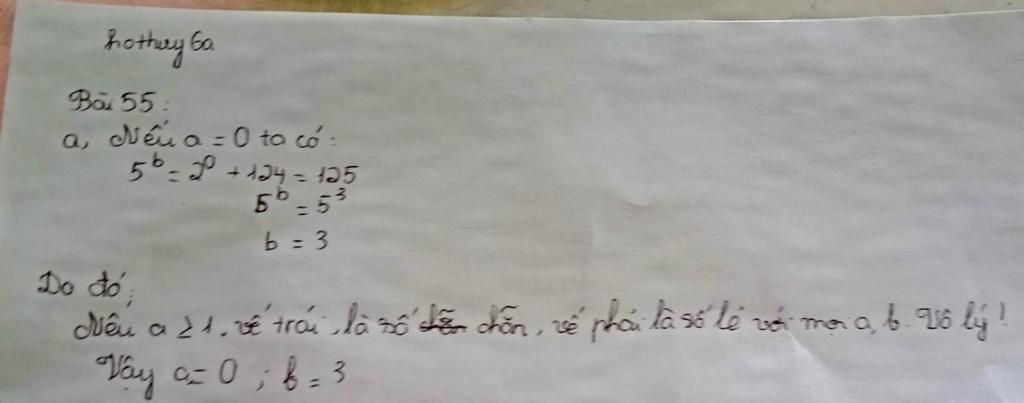 hothuy6a
Bài 55:
a, Nếu a = 0 ta có:
5^b = 2^0 + 124 = 125
5^b = 5^3
b = 3
Do đó;
Nếu a ≥ 1. vế trái, là số chẵn, vế phải là số lẻ với mọi a, b. Vô lý!
Vậy a = 0 ; b = 3